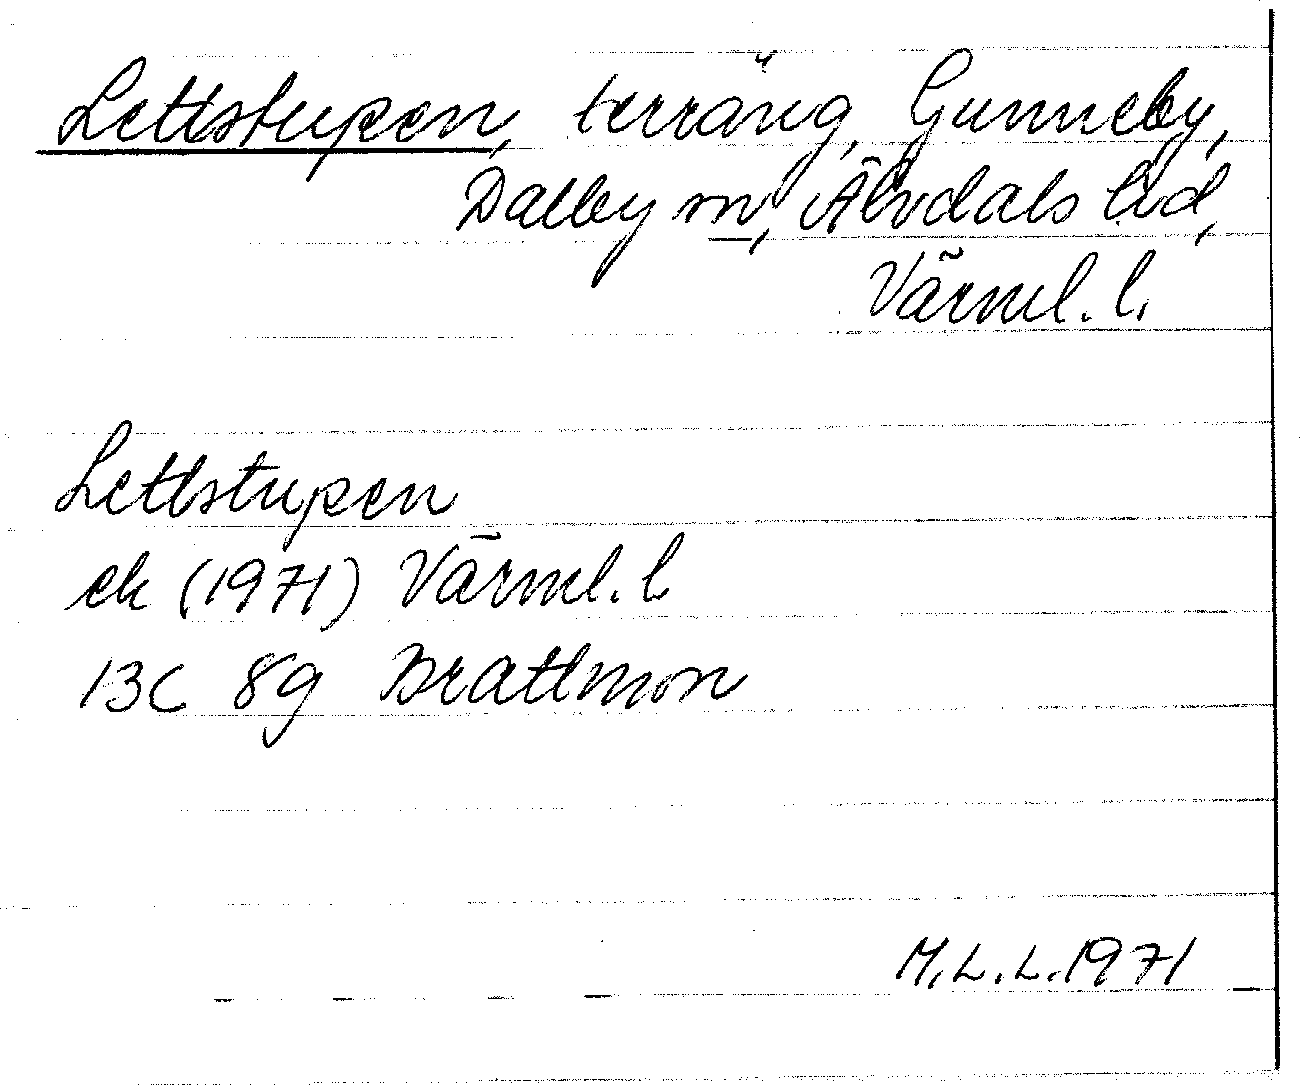 Lettstupen, terräng, Gunneby,
Dalby sn, Älvdals hd,
Värml. l.
Lettstupen
ek (1971) Värml. l
13C 8g Brattmon
M.L.L. 1971